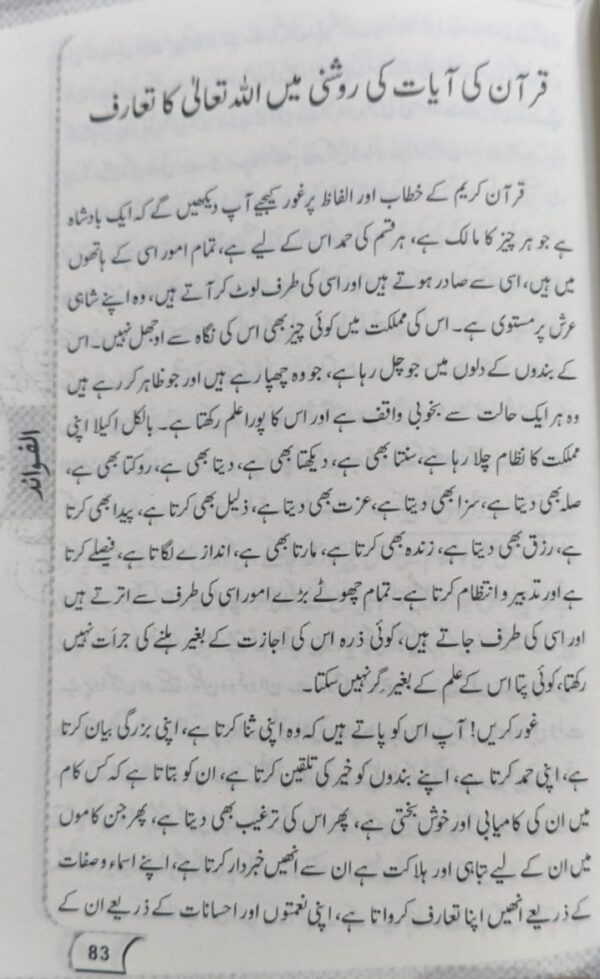 قرآن کی آیات کی روشنی میں اللہ تعالیٰ کا تعارف
قرآن کریم کے خطاب اور الفاظ پر غور کیجیے آپ دیکھیں گے کہ ایک بادشاہ
ہے جو ہر چیز کا مالک ہے، ہر قسم کی حمد اس کے لیے ہے، تمام امور اسی کے ہاتھوں
میں ہیں، اسی سے صادر ہوتے ہیں اور اسی کی طرف لوٹ کر آتے ہیں، وہ اپنے شاہی
عرش پر مستوی ہے۔ اس کی مملکت میں کوئی چیز بھی اس کی نگاہ سے اوجھل نہیں۔ اس
کے بندوں کے دلوں میں جو چل رہا ہے، جو وہ چھپا رہے ہیں اور جو ظاہر کر رہے ہیں
وہ ہر ایک حالت سے بخوبی واقف ہے اور اس کا پورا علم رکھتا ہے۔ بالکل اکیلا اپنی
مملکت کا نظام چلا رہا ہے، سنتا بھی ہے، دیکھتا بھی ہے، دیتا بھی ہے، روکتا بھی ہے،
صلہ بھی دیتا ہے، سزا بھی دیتا ہے، عزت بھی دیتا ہے، ذلیل بھی کرتا ہے، پیدا بھی کرتا
ہے، رزق بھی دیتا ہے، زندہ بھی کرتا ہے، مارتا بھی ہے، اندازے لگاتا ہے، فیصلے کرتا
ہے اور تدبیر و انتظام کرتا ہے۔ تمام چھوٹے بڑے امور اسی کی طرف سے اترتے ہیں
اور اسی کی طرف جاتے ہیں، کوئی ذرہ اس کی اجازت کے بغیر ہلنے کی جرأت نہیں
رکھتا، کوئی پتا اس کے علم کے بغیر گر نہیں سکتا۔
غور کریں! آپ اس کو پاتے ہیں کہ وہ اپنی ثنا کرتا ہے، اپنی بزرگی بیان کرتا
ہے، اپنی حمد کرتا ہے، اپنے بندوں کو خیر کی تلقین کرتا ہے، ان کو بتاتا ہے کہ کس کام
میں ان کی کامیابی اور خوش بختی ہے، پھر اس کی ترغیب بھی دیتا ہے، پھر جن کاموں
میں ان کے لیے تباہی اور ہلاکت ہے ان سے انھیں خبردار کرتا ہے، اپنے اسماء و صفات
کے ذریعے انھیں اپنا تعارف کرواتا ہے، اپنی نعمتوں اور احسانات کے ذریعے ان کے
الفوائد
83